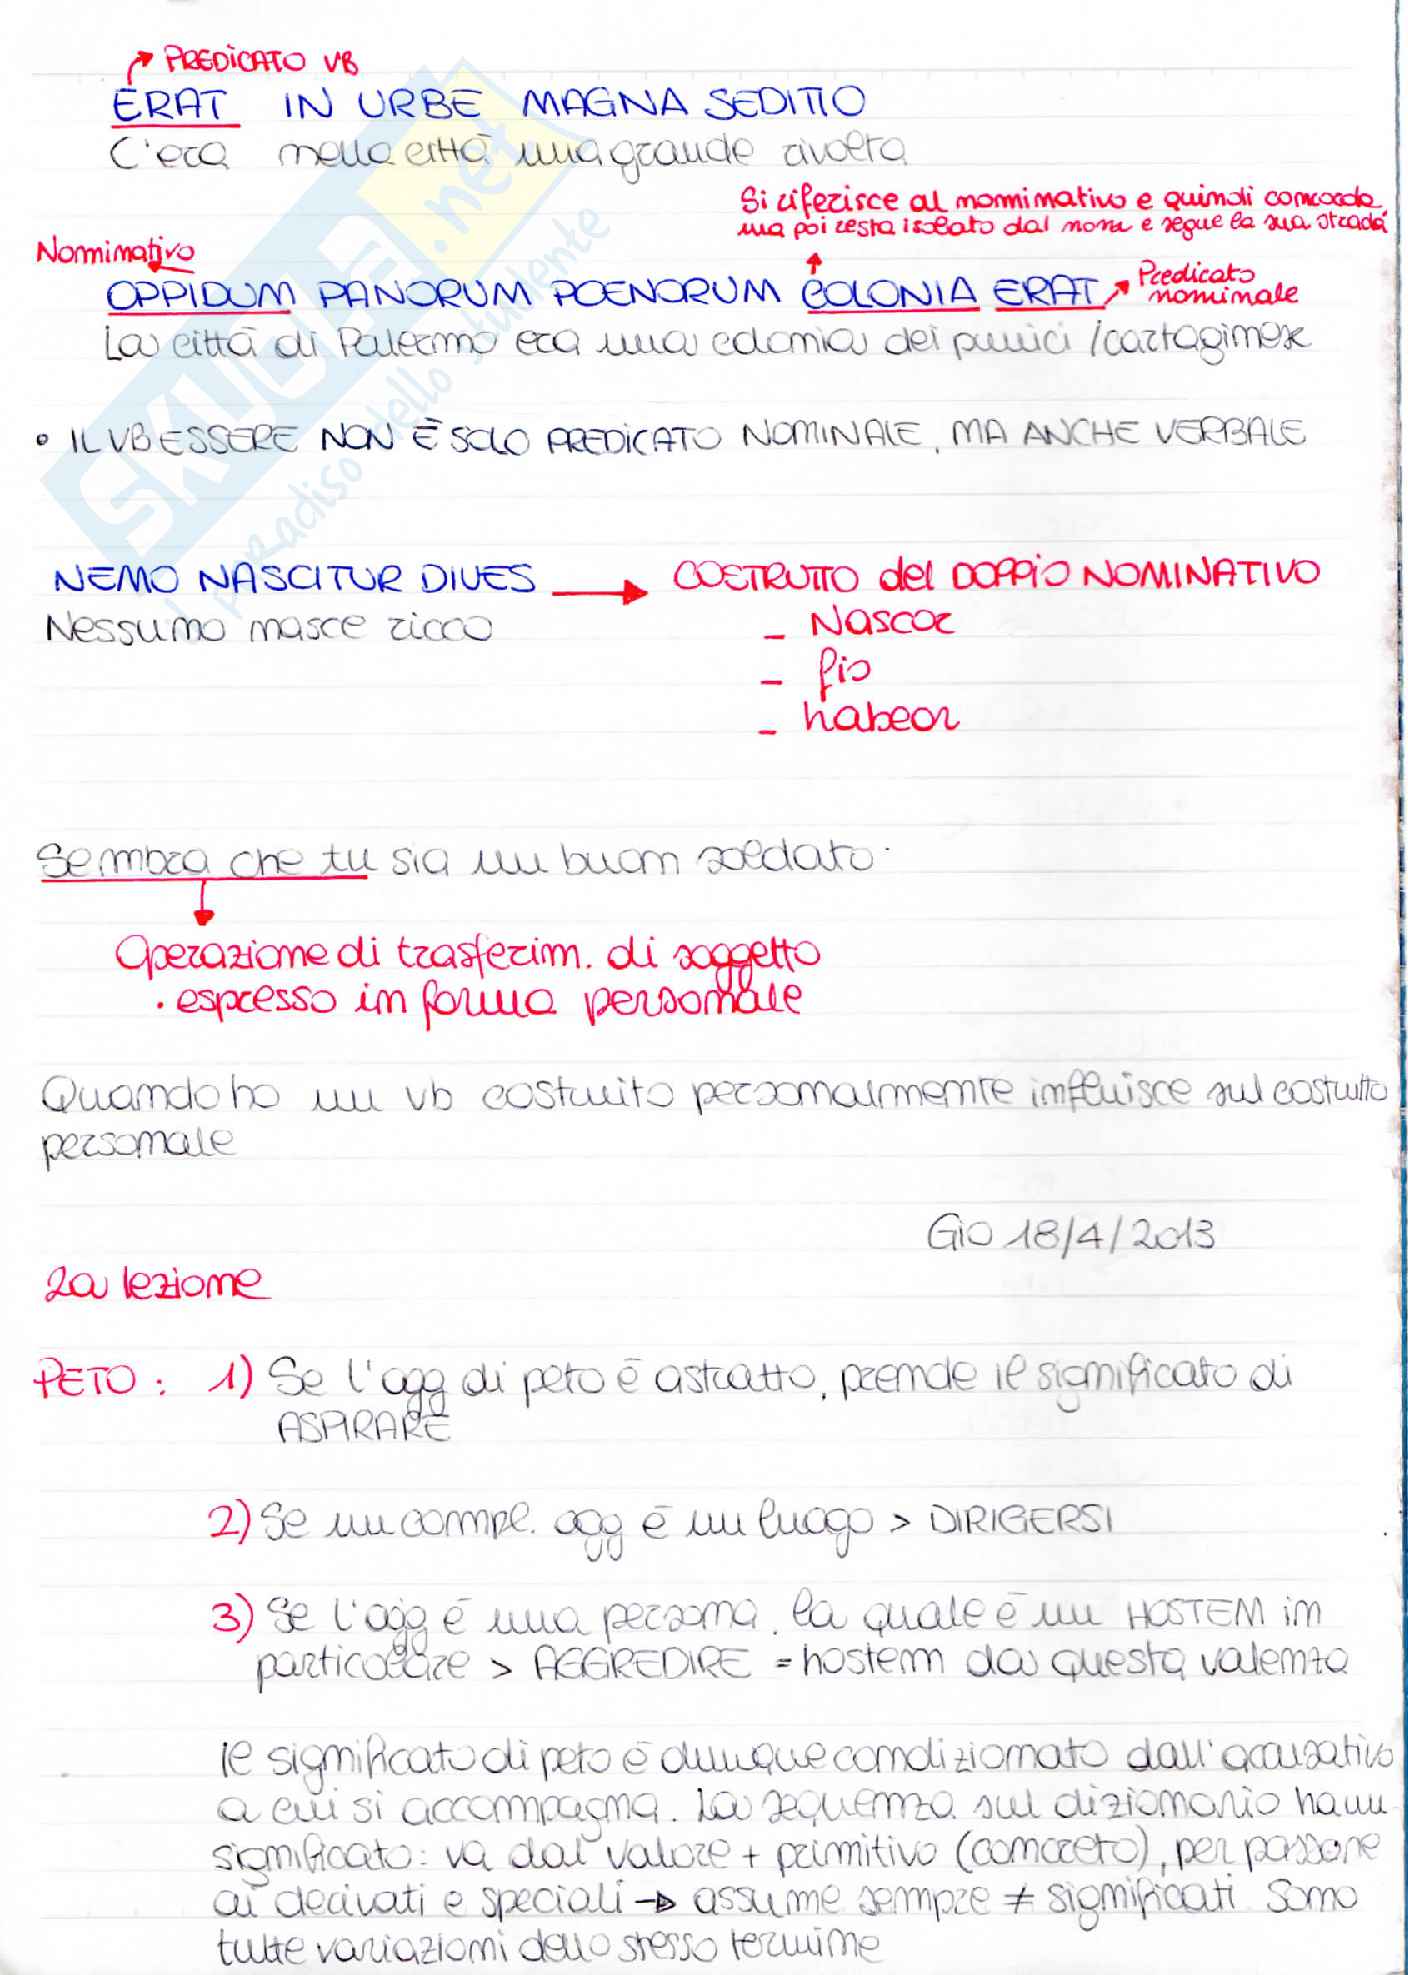 PREDICATO VB
ERAT IN URBE MAGNA SEDITIO
C'era nella città una grande rivolta
Si riferisce al nominativo e quindi concorda
ma poi resta isolato dal nom e segue la sua strada
Nominativo
OPPIDUM PANORUM POENORUM COLONIA ERAT
Predicato
nominale
La città di Palermo era una colonia dei punici / cartaginese
• IL VB ESSERE NON È SOLO PREDICATO NOMINALE, MA ANCHE VERBALE
NEMO NASCITUR DIVES → COSTRUTTO del DOPPIO NOMINATIVO
Nessuno nasce ricco
– Nascor
– fio
– habeor
Sembra che tu sia un buon soldato.
Operazione di trasferim. di soggetto
. espresso in forma personale
Quando ho un vb costruito personalmente influisce sul costrutto
personale
Gio 18/4/2013
2a lezione
PETO : 1) Se l'ogg di peto è astratto, prende il significato di
ASPIRARE
2) Se un compl. ogg è un luogo > DIRIGERSI
3) Se l'ogg è una persona, la quale è un HOSTEM in
particolare > AGGREDIRE = hostem da questa valenza
Il significato di peto è dunque condizionato dall'accusativo
a cui si accompagna. La sequenza sul dizionario ha un
significato: va dal valore + primitivo (concreto), per passare
ai derivati e speciali → assume sempre ≠ significati. Sono
tutte variazioni dello stesso termine
SKUOLA.net
il paradiso dello studente